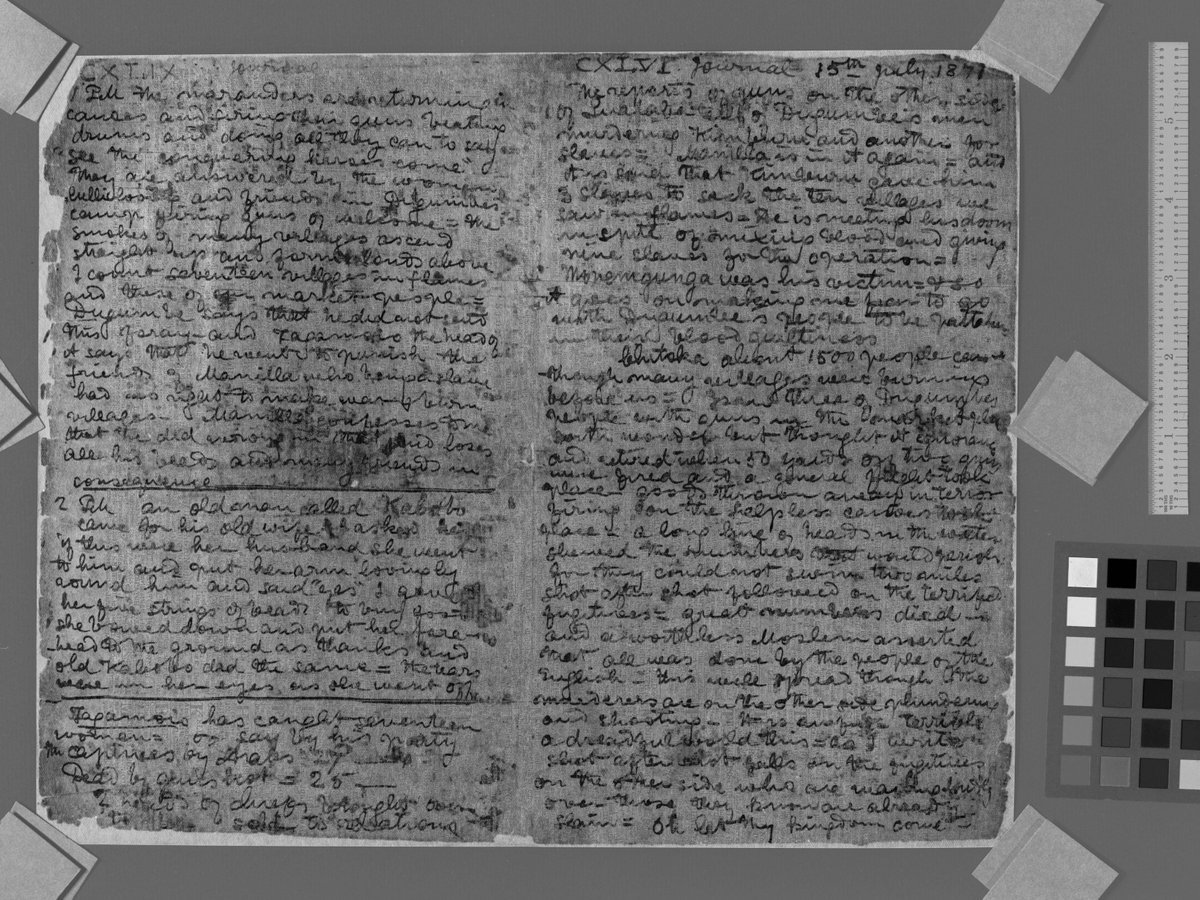 CXLIX Journal
1 PM the marauders are returning in
canoes and firing their guns beating
drums and doing all they can to say
see the conquering heroes come"
They are answered by the women
lullilooing and friends in Dugumbe's
camp firing guns of welcome = the
smokes of many villages ascend
straight up and form clouds above
I count seventeen villages in flames
and these of our market people =
Dugumbe says that he did not send
this foray and Tagamoio the head of
it says that he went to punish the
friends of Manilla who being a slave
had no right to make war & burn
villages - Manilla confesses to me
that he did wrong in this and loses
all his beads and many friends in
consequence
2 PM an old man called Kabobo
came for his old wife I asked her
if this were her husband she went
to him and put her arm lovingly
around him and said "yes" I gave
her five strings of beads to buy food
she bowed down and put her fore-
head to the ground as thanks and
old Kabobo did the same = the tears
were in her eyes as she went off
Tagamoio has caught seventeen
women = or say by his party
The captives by Arabs = 27
Dead by gunshot = 25
2 heads of chiefs brought over
to be sold to relations
CXLVI Journal 15th July 1871
The reports of guns on the other side
of Lualaba tell of Dugumbe's men
murdering Kimburu and another for
slaves = Manilla is in it again = and
it is said that Kimburu gave him
3 slaves to sack the ten villages we
saw in flames = He is meeting his doom
in spite of mixing blood and giving
nine slaves for the operation =
Moenemgunga was his victim = & so
it goes on making me to go
with Dugumbe's people to be partaker
in their blood guiltiness
Chitoka about 1500 people came
though many villages were burning
before us = I saw three of Dugumbe's
people with guns in the
with wonder but thought it ignorance
and retired when 50 yards off two guns
were fired and a general flight took
place - goods thrown away in terror
firing on the helpless canoes took
place - a long line of heads in the water
shewed the numbers that would perish
for they could not swim two miles
shot after shot followed on the terrified
fugitives = great numbers died -
and a worthless Moslem asserted
that all was done by the people of the
English - this will spread though the
murderers are on the other side plundering
and shooting - It is awful - terrible
a dreadful world this = as I write
shot after shot falls on the fugitives
on the other side who are wailing loudly
over those they know are already
slain = Oh let thy kingdom come -